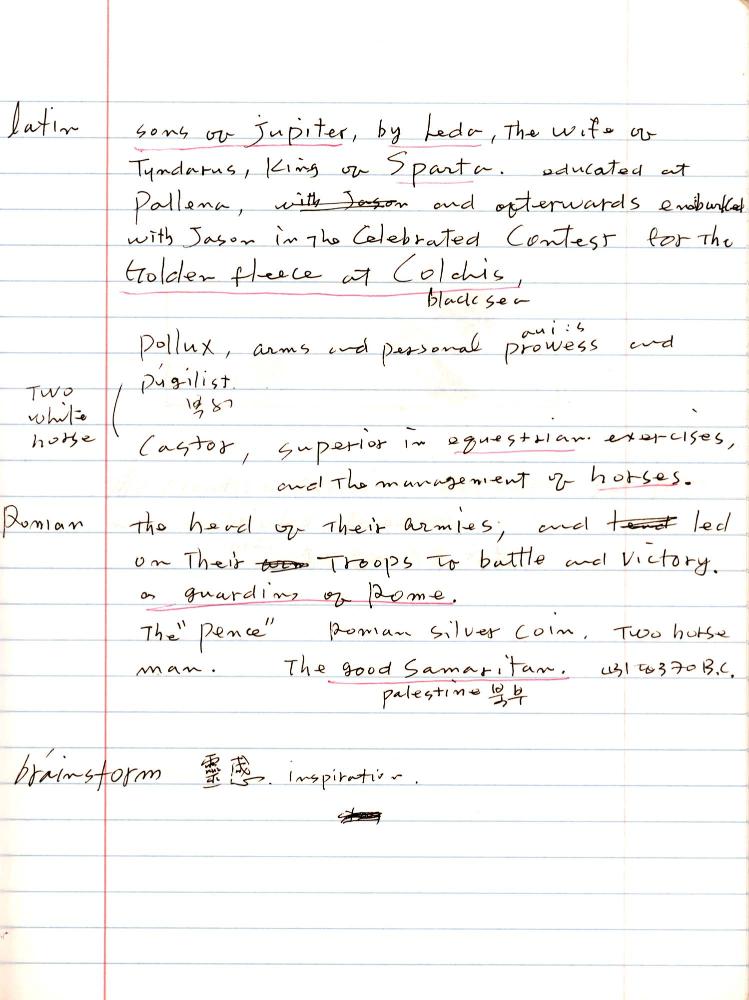 latin sons of jupiter, by Leda, The wife of
Tyndarus, King of Sparta. educated at
Pallena, with Jason and afterwards embarked
with Jason in The Celebrated Contest for The
Golden fleece at Colchis,
black sea
pollux, arms and personal prowess and
pugilist.
Two
white
horse
Castor, superior in equestrian exercises,
and The management of horses.
Roman the head of Their armies, and led
on Their Troops To battle and Victory.
as guardins of Rome.
The "pence" Roman silver coin. Two horse
man. The good Samaritan. B.C.
palestine 북부
brainstorm 靈感. inspiration.